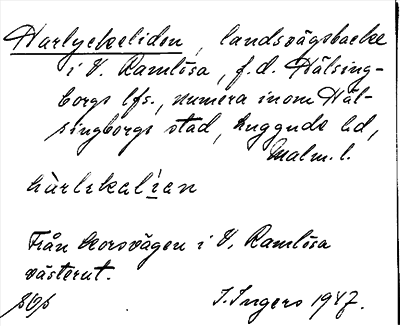 Harlyckeliden, landsvägsbacke
i V. Ramlösa, f.d. Hälsing-
borgs lfs., numera inom Häl-
singborgs stad, Luggude hd,
Malm. l.
hàrlekalian
Från korsvägen i V. Ramlösa
västerut.
I. Ingers 1947.